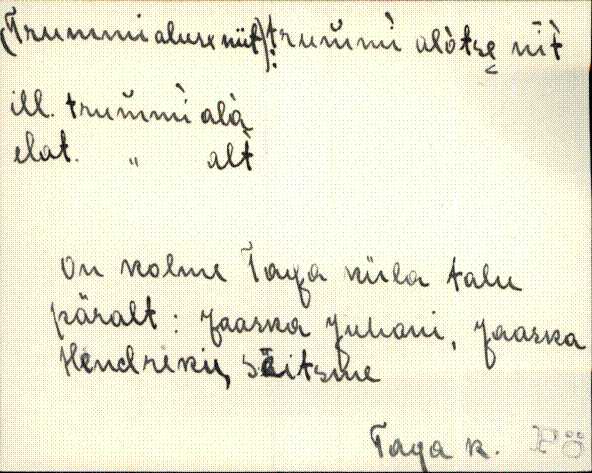 (Trummi aluse niit) : trum̆mì alòtsę nīt̀
ill. trum̆mì alà
elat. " alt̀
On kolme Taga küla talu
päralt : Jaaska Juhani, Jaaska
Hendriku, Sēitsme
Taga k. Pö